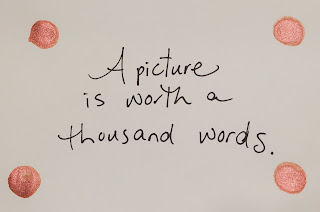 A picture
is worth a
thousand words.